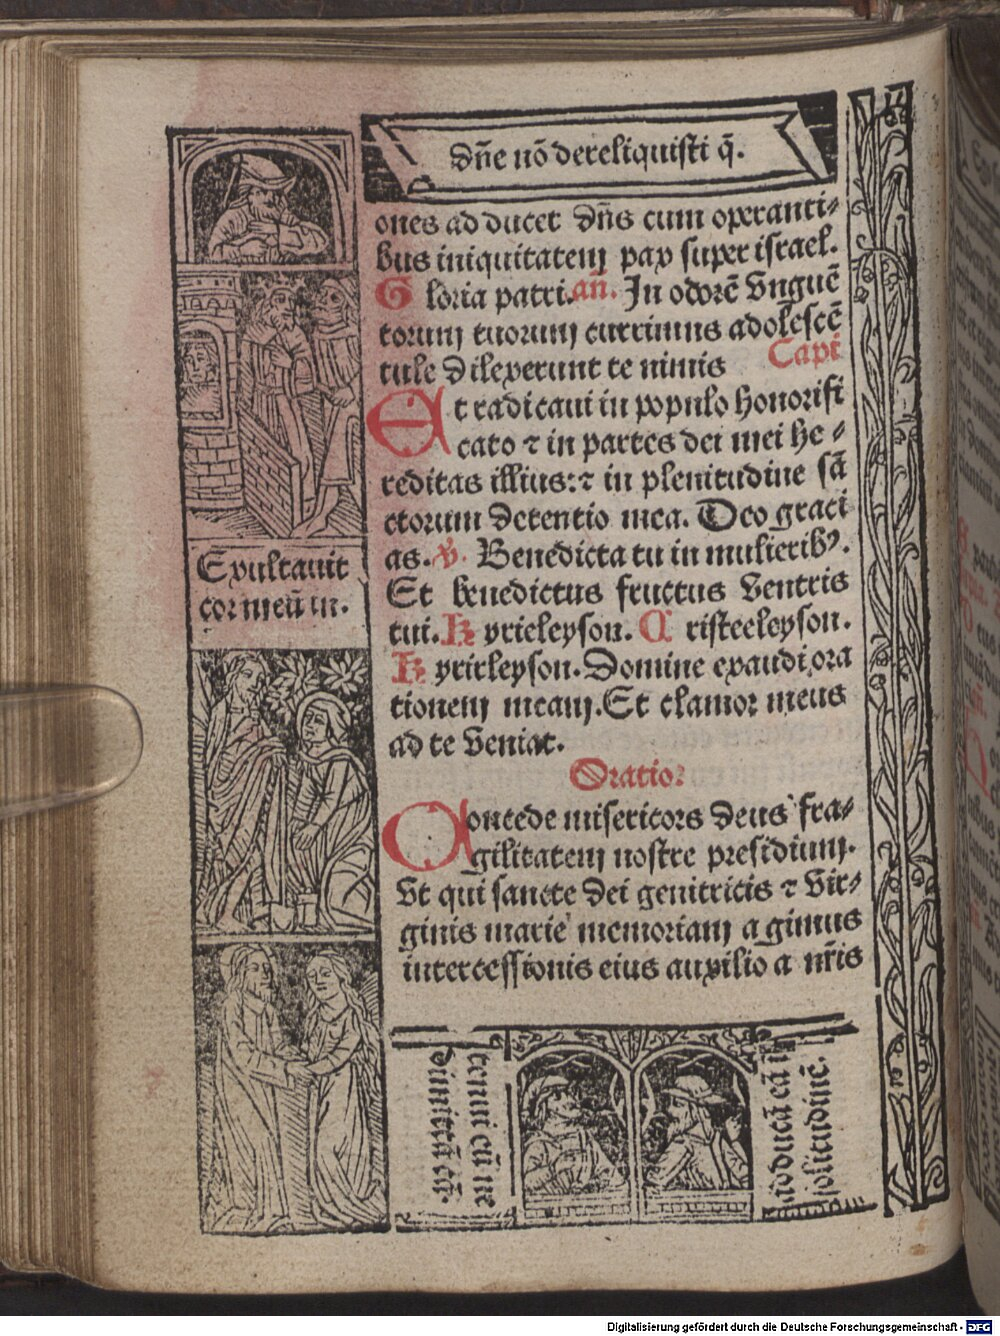 dñe nõ dereliquisti q̄.
ones ad ducet dñs cum operanti⸗
bus iniquitatem pax super israel.
Gloria patri. añ. In odorē vnguē
torum tuorum currimus adolescē
tule dilexerunt te nimis
Capi
Et radicaui in populo honorifi
cato ⁊ in partes dei mei he⸗
reditas illius: ⁊ in plenitudine sā
ctorum detentio mea. Deo graci
as. ℣. Benedicta tu in mulierib⁹.
Et benedictus fructus ventris
tui. Kyrieleyson. Cristeeleyson.
Kyrirleyson. Domine exaudi ora
tionem meam. Et clamor meus
ad te veniat.
Oratio
Concede misericors deus fra⸗
gilitatem nostre presidium.
Vt qui sancte dei genitricis ⁊ vir⸗
ginis marie memoriam a gimus
intercessionis eius auxilio a nr̄is
Exultauit
cor meū in.
cū me
adducā eā ī
solitudinē.
Digitalisierung gefördert durch die Deutsche Forschungsgemeinschaft - DFG